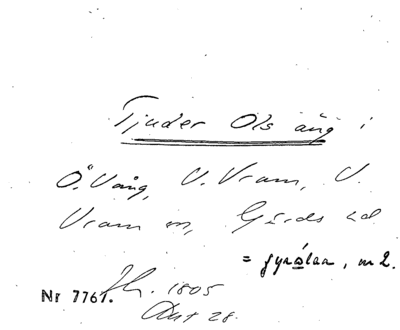 Tjuder Ols äng i
Ö. Vång, V. Vram, V.
Vram sn, Gärds hd
= fyrålan, m 2.
Nr 7767. Jh. 1805
Akt 28.